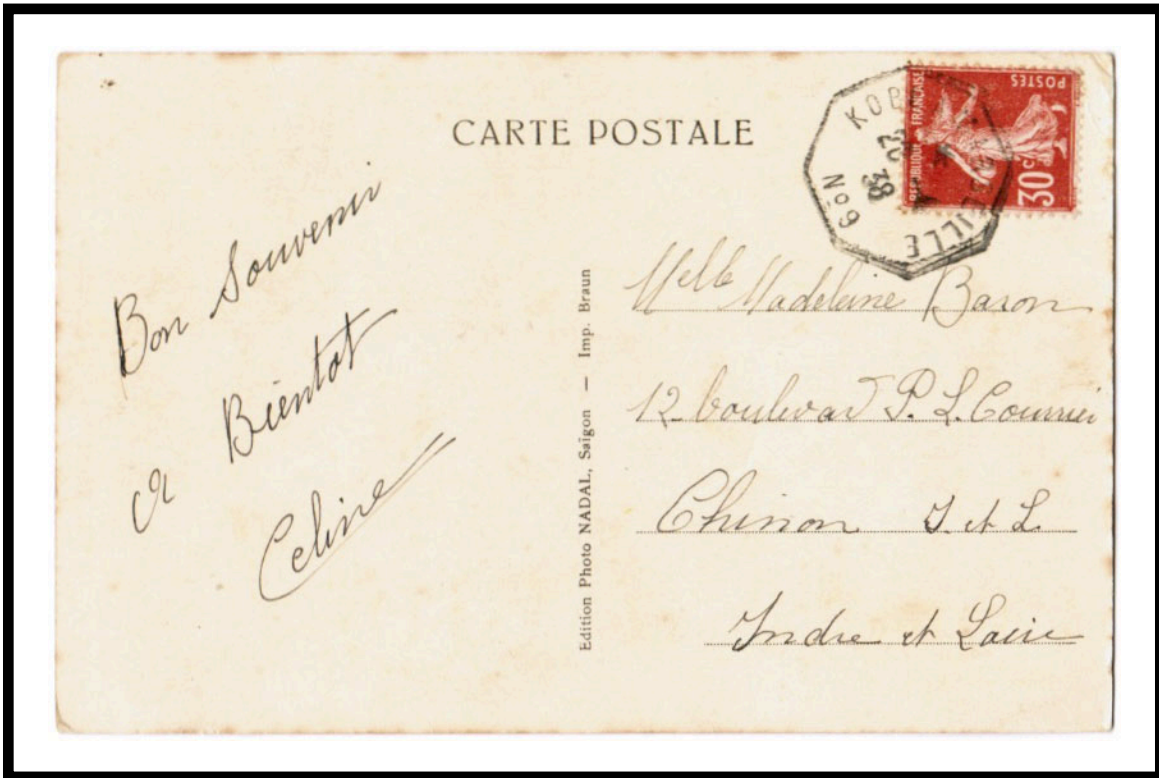 CARTE POSTALE
Bon Souvenir
a Bientot
Celine
Edition Photo NADAL, Saigon — Imp. Braun
REPUBLIQUE FRANÇAISE
POSTES
30c
Nº 9
Melle Madeleine Baron
12 boulevard P. L. Courrier
Chinon I et L
Indre et Loire